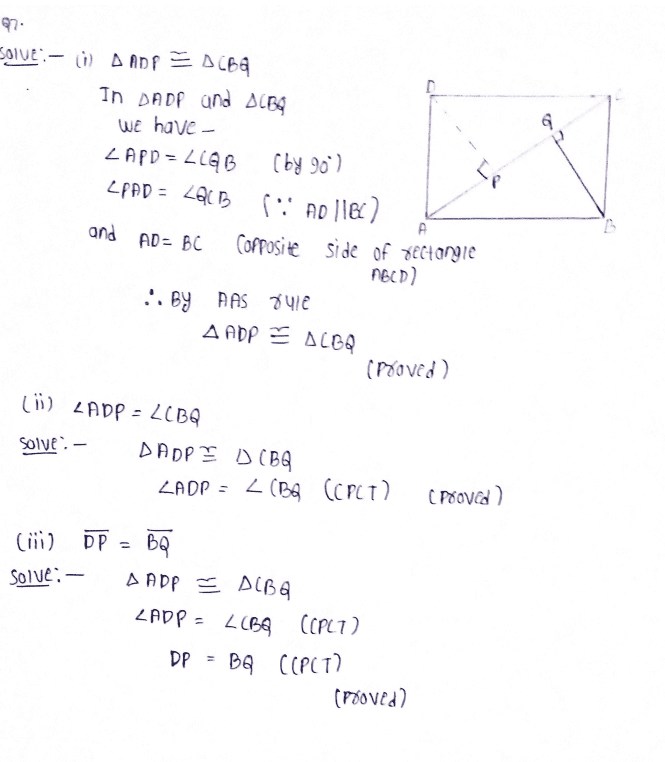 Q7.
Solve:- (i) △ADP ≅ △CBQ
In △ADP and △CBQ
we have -
∠APD = ∠CQB (by 90°)
∠PAD = ∠QCB (∵ AD||BC)
and AD = BC (opposite side of rectangle
ABCD)
∴ By AAS rule
△ADP ≅ △CBQ
(proved)
D
C
Q
P
A
B
(ii) ∠ADP = ∠CBQ
Solve:- △ADP ≅ △CBQ
∠ADP = ∠CBQ (CPCT) (proved)
(iii) D̅P̅ = B̅Q̅
Solve:- △ADP ≅ △CBQ
∠ADP = ∠CBQ (CPCT)
DP = BQ (CPCT)
(proved)